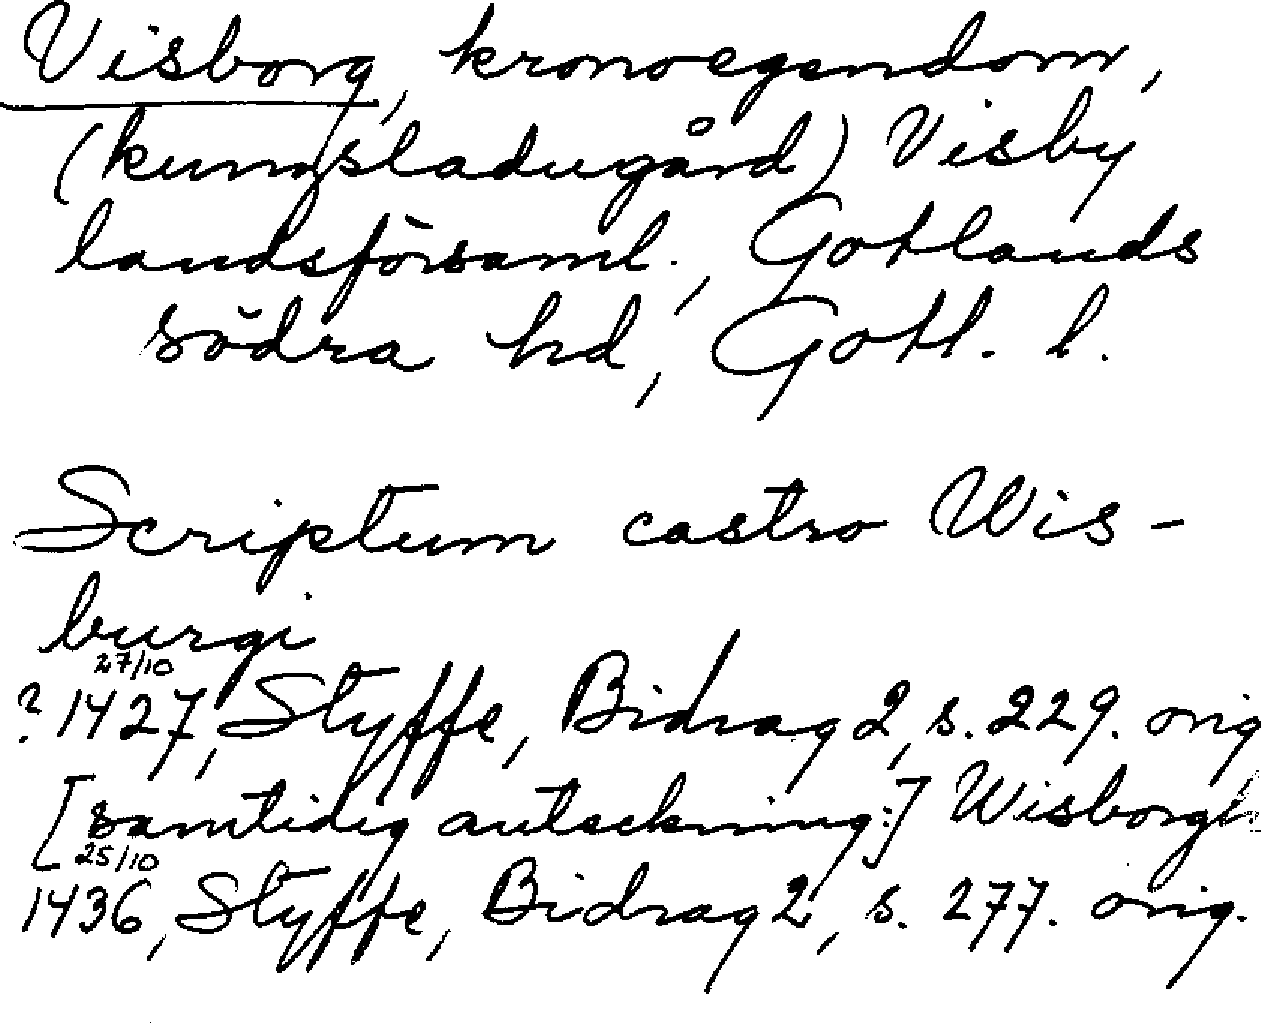 Visborg, kronoegendom,
(kungsladugård) Visby
landsförsaml., Gotlands
södra hd, Gotl. l.
Scriptum castro Wis-
burgi
27/10
? 1427, Styffe, Bidrag 2, s. 229. orig
[samtidig anteckning:] Wisborgh
25/10
1436, Styffe, Bidrag 2, s. 277. orig.